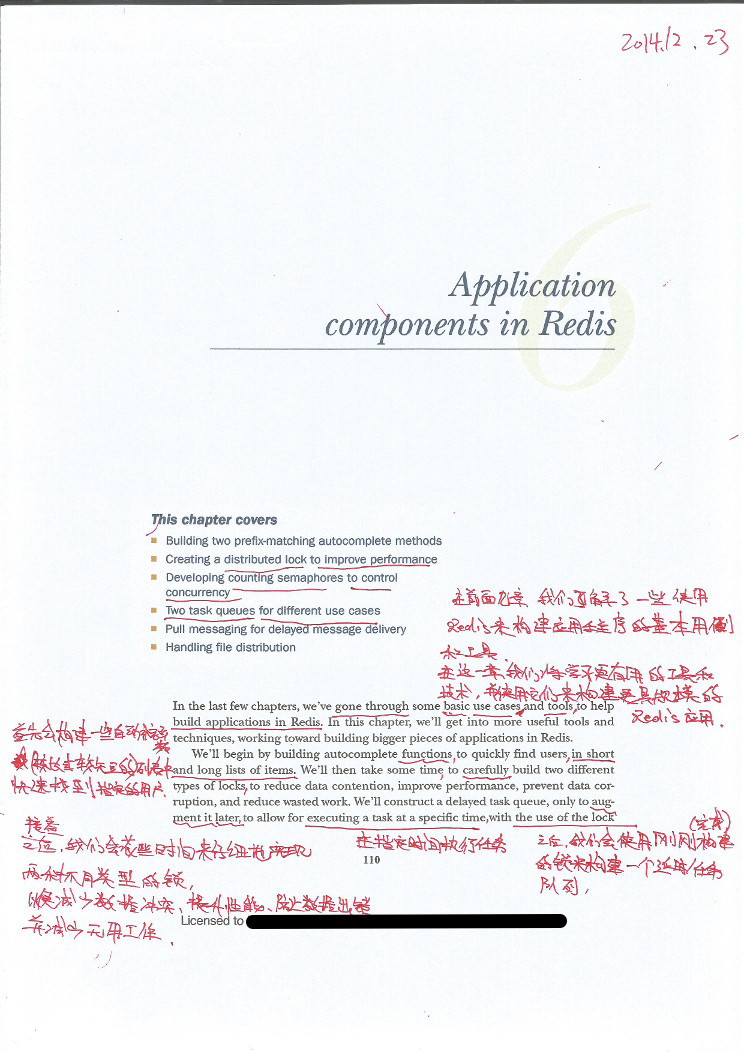 2014.12.23
6
Application
components in Redis
This chapter covers
Building two prefix-matching autocomplete methods
Creating a distributed lock to improve performance
Developing counting semaphores to control
concurrency
Two task queues for different use cases
Pull messaging for delayed message delivery
Handling file distribution
在前面几章,我们了解了一些使用
Redis来构建应用程序的基本用例
和工具
在这一章,我们将学习更有用的工具和
技术,并使用它们来构建更具规模的
Redis应用.
In the last few chapters, we've gone through some basic use cases and tools to help
build applications in Redis. In this chapter, we'll get into more useful tools and
techniques, working toward building bigger pieces of applications in Redis.
We'll begin by building autocomplete functions to quickly find users in short
and long lists of items. We'll then take some time to carefully build two different
types of locks to reduce data contention, improve performance, prevent data cor-
ruption, and reduce wasted work. We'll construct a delayed task queue, only to aug-
ment it later to allow for executing a task at a specific time with the use of the lock
首先会构建一些自动
快速找到指定的用户.
接着
之后,我们会花些时间来仔细地实现
两种不同类型的锁,
以减少数据冲突、提升性能、防止数据出错
并减少无用工作.
在指定时间执行任务
之后,我们会使用刚刚构建
的锁来构建一个延时任务
队列,
110
Licensed to